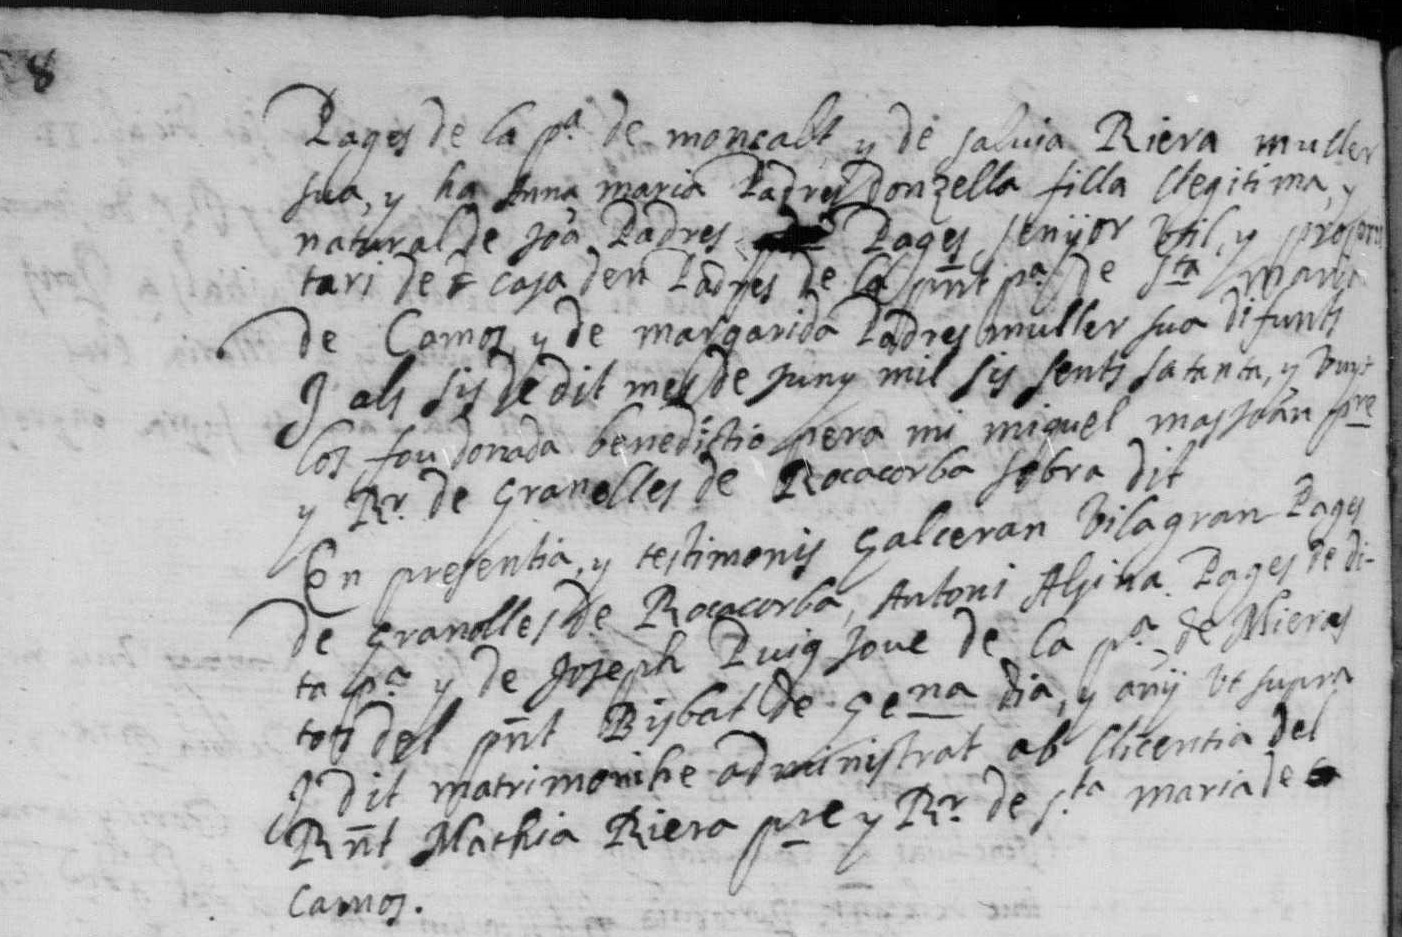 8
Pages de la pª de moncalt, y de salvia Riera muller
sua, y ha Anna maria Padres donzella filla llegitima, y
natural de Joã Padres Pages senÿor util, y propri
tari de casa den Padres de la pñt pª de Sta maria
de Camos y de margarida Padres muller sua difunts
J als sis de dit mes de Juny mil sis sents satanta, y vuyt
los fou donada benedictio pera mi miquel masJoan pre
y Rr. de Granolles de Rocacorba sobra dit
En presentia, y testimonis Galceran Vilagran Pages
de Granolles de Rocacorba, Antoni Alsina Pages de di-
ta pª y de Joseph Puig Jove de la pª de Mieras
tots del pñt Bisbat de Gena dia, y anÿ ut supra
J dit matrimoni he administrat ab llicentia del
Rñt Mathia Riera pre y Rr. de Sta maria de
Camos.